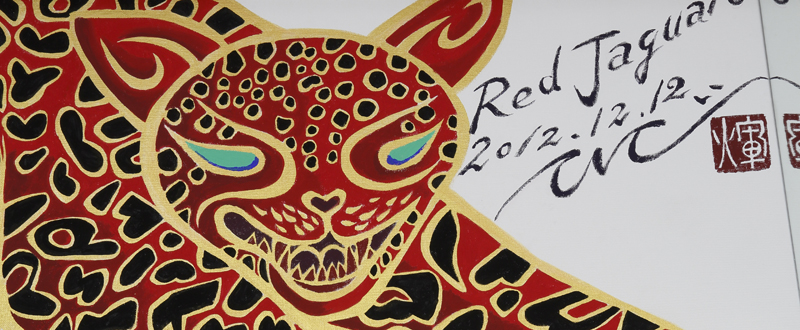 Red Jaguar
2012.12.12.
輝